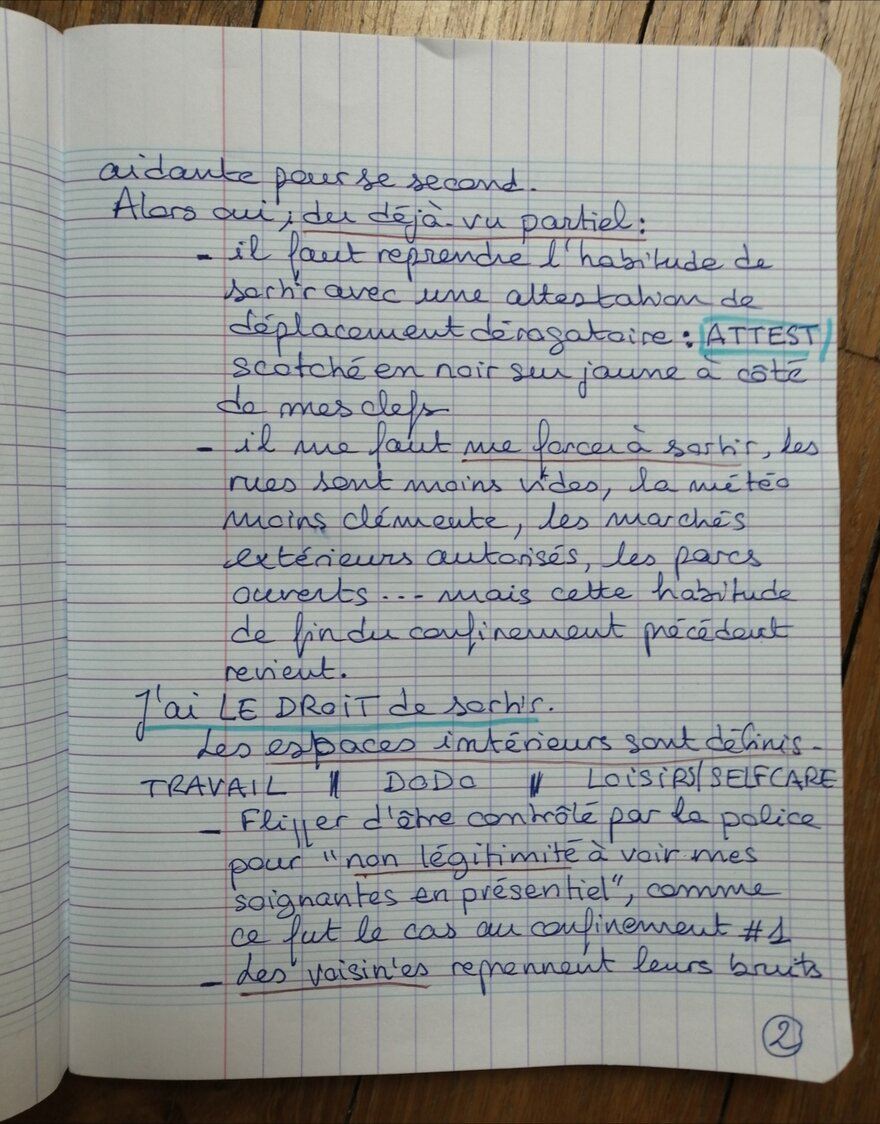 aidante pour se second.
Alors oui, du déjà-vu partiel :
- il faut reprendre l'habitude de
sortir avec une attestation de
déplacement dérogatoire : ATTEST
scotché en noir sur jaune à côté
de mes clefs
- il me faut me forcer à sortir, les
rues sont moins vides, la météo
moins clémente, les marchés
extérieurs autorisés, les parcs
ouverts... mais cette habitude
de fin du confinement précédent
revient.
J'ai LE DROIT de sortir.
Les espaces intérieurs sont définis -
TRAVAIL || DODO || LOISIRS/SELFCARE
- Flipper d'être contrôlé par la police
pour "non légitimité à voir mes
soignantes en présentiel", comme
ce fut le cas au confinement #1
- Les voisin'es reprennent leurs bruits
2